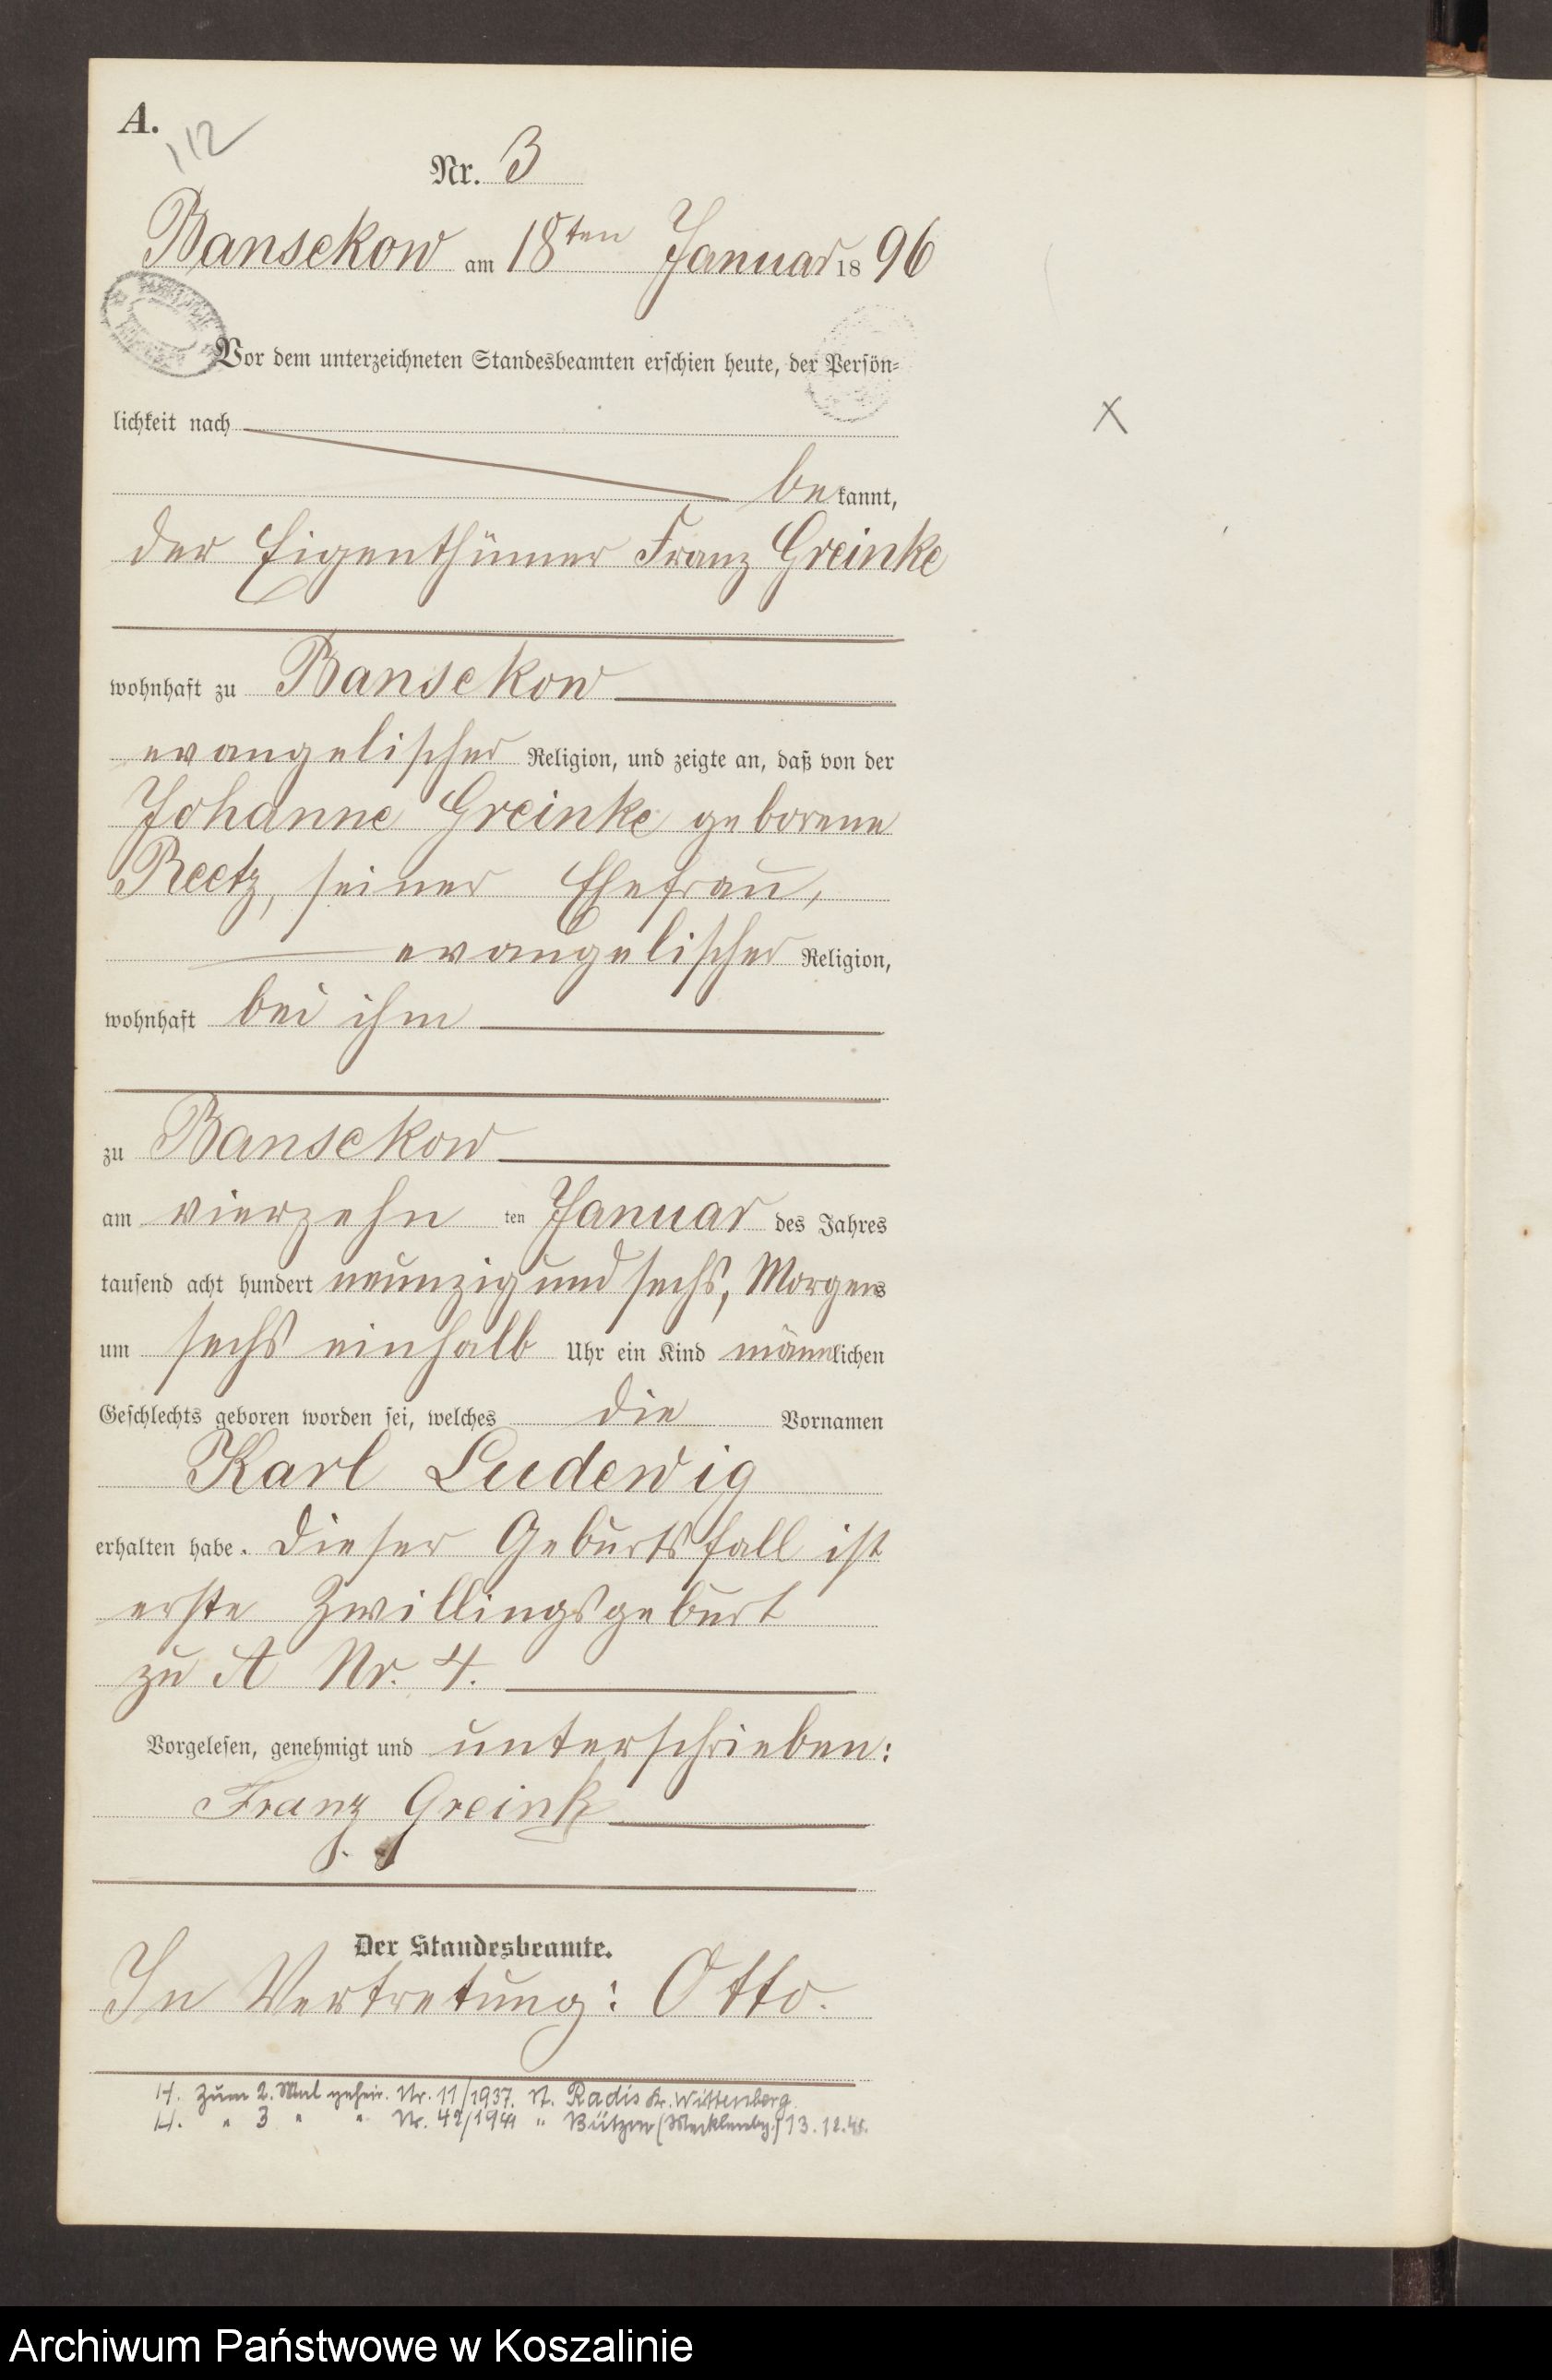 A.
112
Nr. 3
Bansekow am 18ten Januar 1896
Vor dem unterzeichneten Standesbeamten erschien heute, der Persön=
lichkeit nach
bekannt,
der Eigenthümer Franz Greinke
wohnhaft zu Bansekow
evangelischer Religion, und zeigte an, daß von der
Johanne Greinke geborene
Reetz, seiner Ehefrau,
evangelischer Religion,
wohnhaft bei ihm
zu Bansekow
am vierzehn ten Januar des Jahres
tausend acht hundert neunzig und sechs, Morgens
um sechs einhalb Uhr ein Kind männlichen
Geschlechts geboren worden sei, welches die Vornamen
Karl Ludewig
erhalten habe. Dieser Geburtsfall ist
erste Zwillingsgeburt
zu A Nr. 4.
Vorgelesen, genehmigt und unterschrieben:
Franz Greink
Der Standesbeamte.
In Vertretung: Otto.
H. zum 2. Mal geheir. Nr. 11/1937. St. Radis Kr. Wittenberg
H. " 3 " " Nr. " Bützow (Mecklenbg.) 13.12.
Archiwum Państwowe w Koszalinie